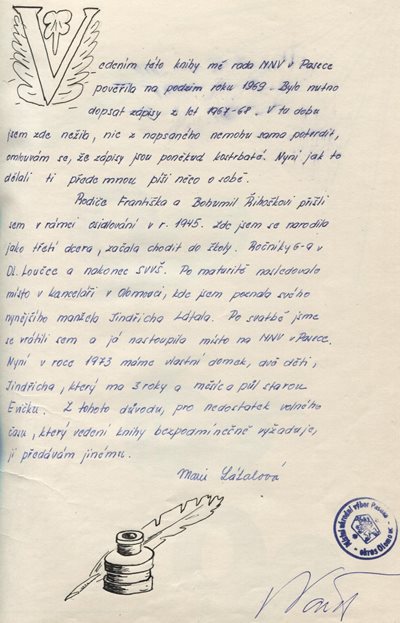 Vedením této knihy mě rada MNV v Pasece
pověřila na podzim roku 1969. Bylo nutno
dopsat zápisy z let 1967-68. V tu dobu
jsem zde nežila, nic z napsaného nemohu sama potvrdit,
omlouvám se, že zápisy jsou poněkud kostrbaté. Nyní jak to
dělali ti přede mnou píši něco o sobě.
Rodiče Františka a Bohumil Řihoškovi přišli
sem v rámci osidlování v r. 1945. Zde jsem se narodila
jako třetí dcera, začala chodit do školy. Ročníky 6-9 v
Dl. Loučce a nakonec SVVŠ. Po maturitě následovalo
místo v kanceláři v Olomouci, kde jsem poznala svého
nynějšího manžela Jindřicha Látala. Po svatbě jsme
se vrátili sem a já nastoupila místo na MNV v Pasece.
Nyní v roce 1973 máme vlastní domek, dvě děti,
Jindřicha, který má 3 roky a měsíc a půl starou
Evičku. Z tohoto důvodu, pro nedostatek volného
času, který vedení knihy bezpodmínečně vyžaduje,
ji předávám jinému.
Marie Látalová
Místní národní výbor Paseka
okres Olomouc